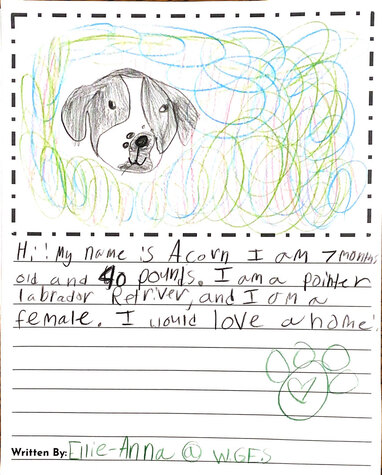 Hi! My name is Acorn I am 7 months
old and 40 pounds. I am a pointer
labrador Retriver, and I am a
female. I would love a home!
Written By: Ellie-Anna @ W.G.E.S